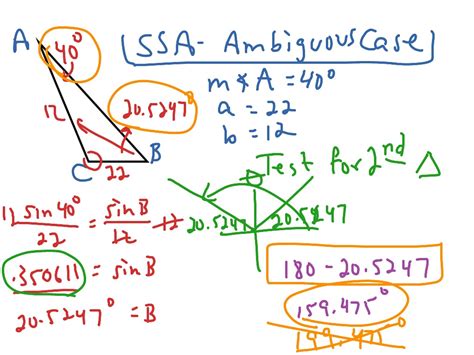 SSA- Ambiguous Case
A 40°
m∡A = 40°
a = 22
b = 12
12
20.5247°
B
C 22
Test for 2nd △
12 sin40° = sin B 12
22 12
20.5247 20.5247
.350611 = sin B
20.5247° = B
180 - 20.5247
159.475°
199.475°